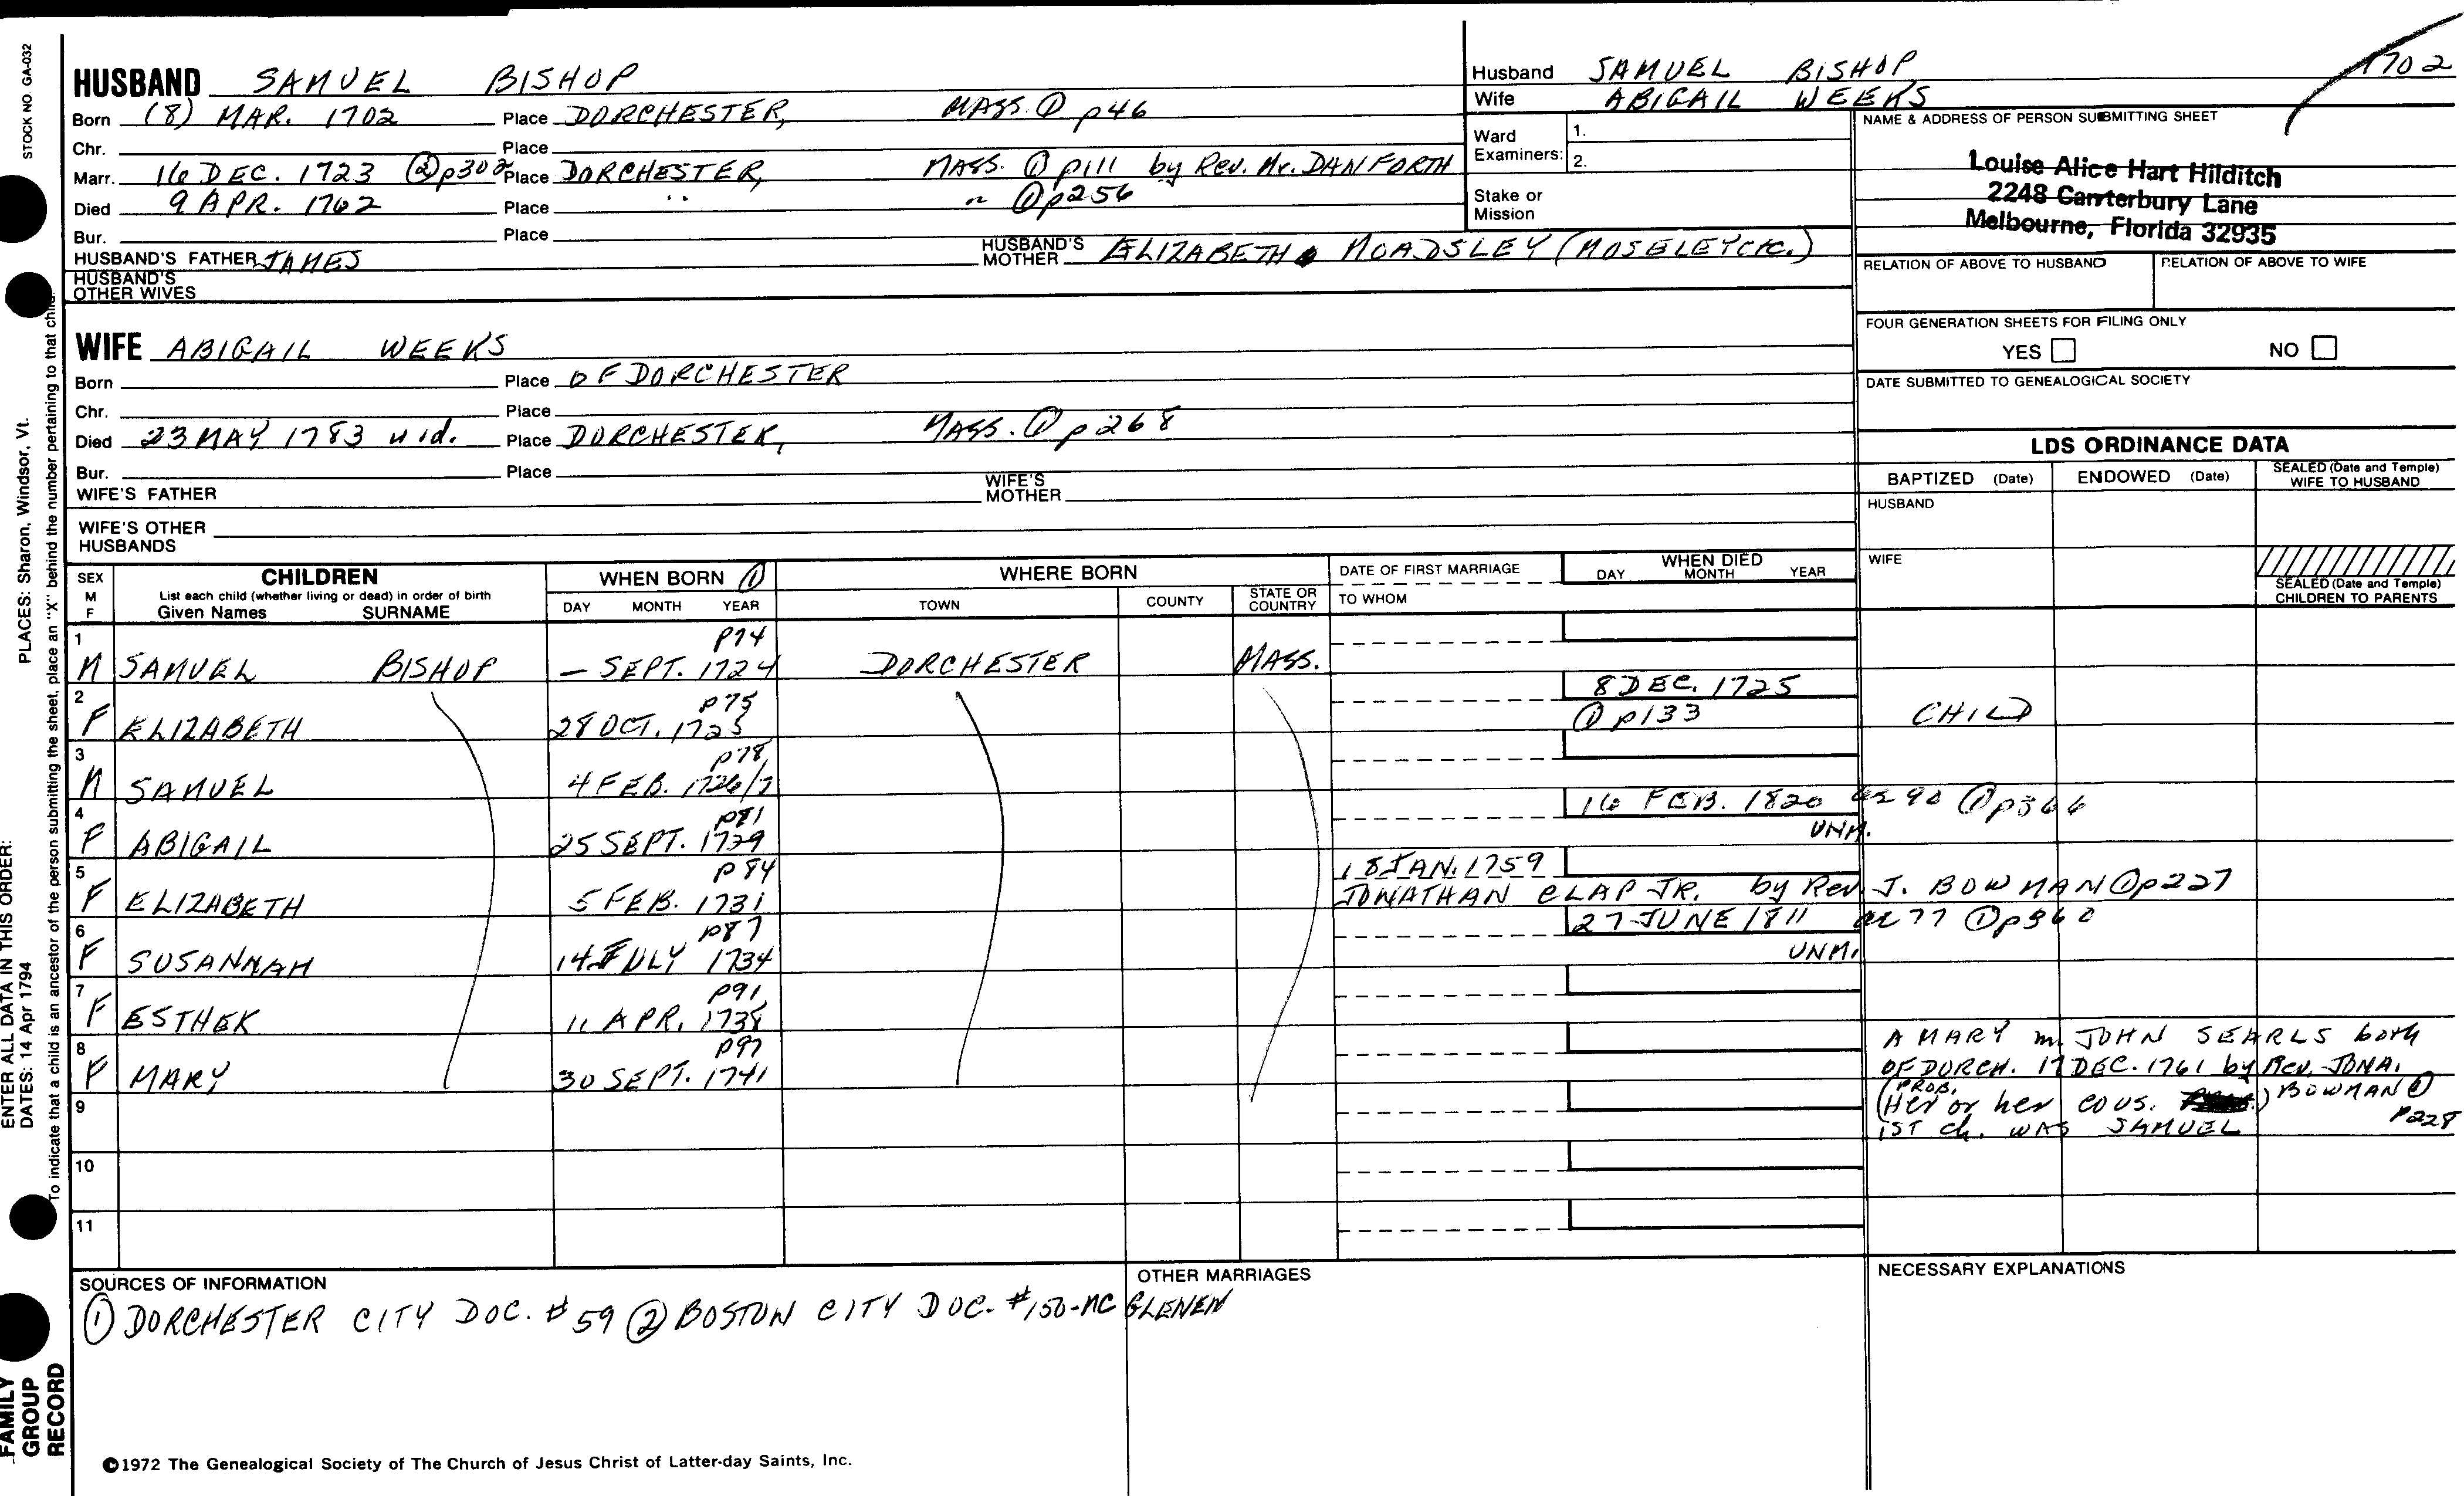 STOCK NO. GA-032
PLACES: Sharon, Windsor, Vt.
ENTER ALL DATA IN THIS ORDER:
DATES: 14 Apr 1794
To indicate that a child is an ancestor of the person submitting the sheet, place an "X" behind the number pertaining to that child.
FAMILY GROUP RECORD
HUSBAND SAMUEL BISHOP
Born (8) MAR. 1702 Place DORCHESTER, MASS. ① p46
Chr. Place
Marr. 16 DEC. 1723 ② p302 Place DORCHESTER, MASS. ① p111 by Rev. Mr. DANFORTH
Died 9 APR. 1762 Place " " ① p256
Bur. Place
HUSBAND'S FATHER JAMES HUSBAND'S MOTHER ELIZABETH MOADSLEY (MOSELEY
HUSBAND'S OTHER WIVES
WIFE ABIGAIL WEEKS
Born Place OF DORCHESTER
Chr. Place
Died 23 MAY 1783 wid. Place DORCHESTER, MASS. ① p268
Bur. Place
WIFE'S FATHER WIFE'S MOTHER
WIFE'S OTHER HUSBANDS
Husband SAMUEL BISHOP 1702
Wife ABIGAIL WEEKS
Ward Examiners: 1.
2.
Stake or Mission
NAME & ADDRESS OF PERSON SUBMITTING SHEET
Louise Alice Hart Hilditch
2248 Canterbury Lane
Melbourne, Florida 32935
RELATION OF ABOVE TO HUSBAND RELATION OF ABOVE TO WIFE
FOUR GENERATION SHEETS FOR FILING ONLY
YES NO
DATE SUBMITTED TO GENEALOGICAL SOCIETY
LDS ORDINANCE DATA
BAPTIZED (Date) ENDOWED (Date) SEALED (Date and Temple) WIFE TO HUSBAND
HUSBAND
WIFE
SEALED (Date and Temple) CHILDREN TO PARENTS
SEX M F CHILDREN WHEN BORN ① WHERE BORN DATE OF FIRST MARRIAGE WHEN DIED
List each child (whether living or dead) in order of birth
Given Names SURNAME DAY MONTH YEAR TOWN COUNTY STATE OR COUNTRY TO WHOM DAY MONTH YEAR
1 p74
M SAMUEL BISHOP – SEPT. 1724 DORCHESTER MASS.
2 p75 8 DEC. 1725
F ELIZABETH 28 OCT. 1725 ① p133 CHILD
3 p78
M SAMUEL 4 FEB. 1726/7
4 p81 16 FEB. 1820 ae 90 ① p366
F ABIGAIL 25 SEPT. 1729 UNM.
5 p84 18 JAN. 1759
F ELIZABETH 5 FEB. 1731 JONATHAN CLAP JR. by Rev J. BOWMAN ① p227
6 p87 27 JUNE 1811 ae 77 ① p360
F SUSANNAH 14 JULY 1734 UNM.
7 p91
F ESTHER 11 APR. 1738
8 p97
F MARY 30 SEPT. 1741
A MARY m. JOHN SEARLS both
OF DORCH. 17 DEC. 1761 by Rev. JONA.
(PROB. Her or her cous. ) BOWMAN ① p228
1ST ch. WAS SAMUEL
9
10
11
SOURCES OF INFORMATION
① DORCHESTER CITY DOC. # 59 ② BOSTON CITY DOC. #150-MC GLENEN
OTHER MARRIAGES
NECESSARY EXPLANATIONS
©1972 The Genealogical Society of The Church of Jesus Christ of Latter-day Saints, Inc.